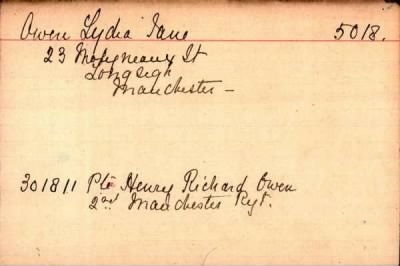 Owen Lydia Jane 5018.
23 Molyneaux St
Longsight
Manchester -
301811 Pte Henry Richard Owen
2nd Manchester Rgt.